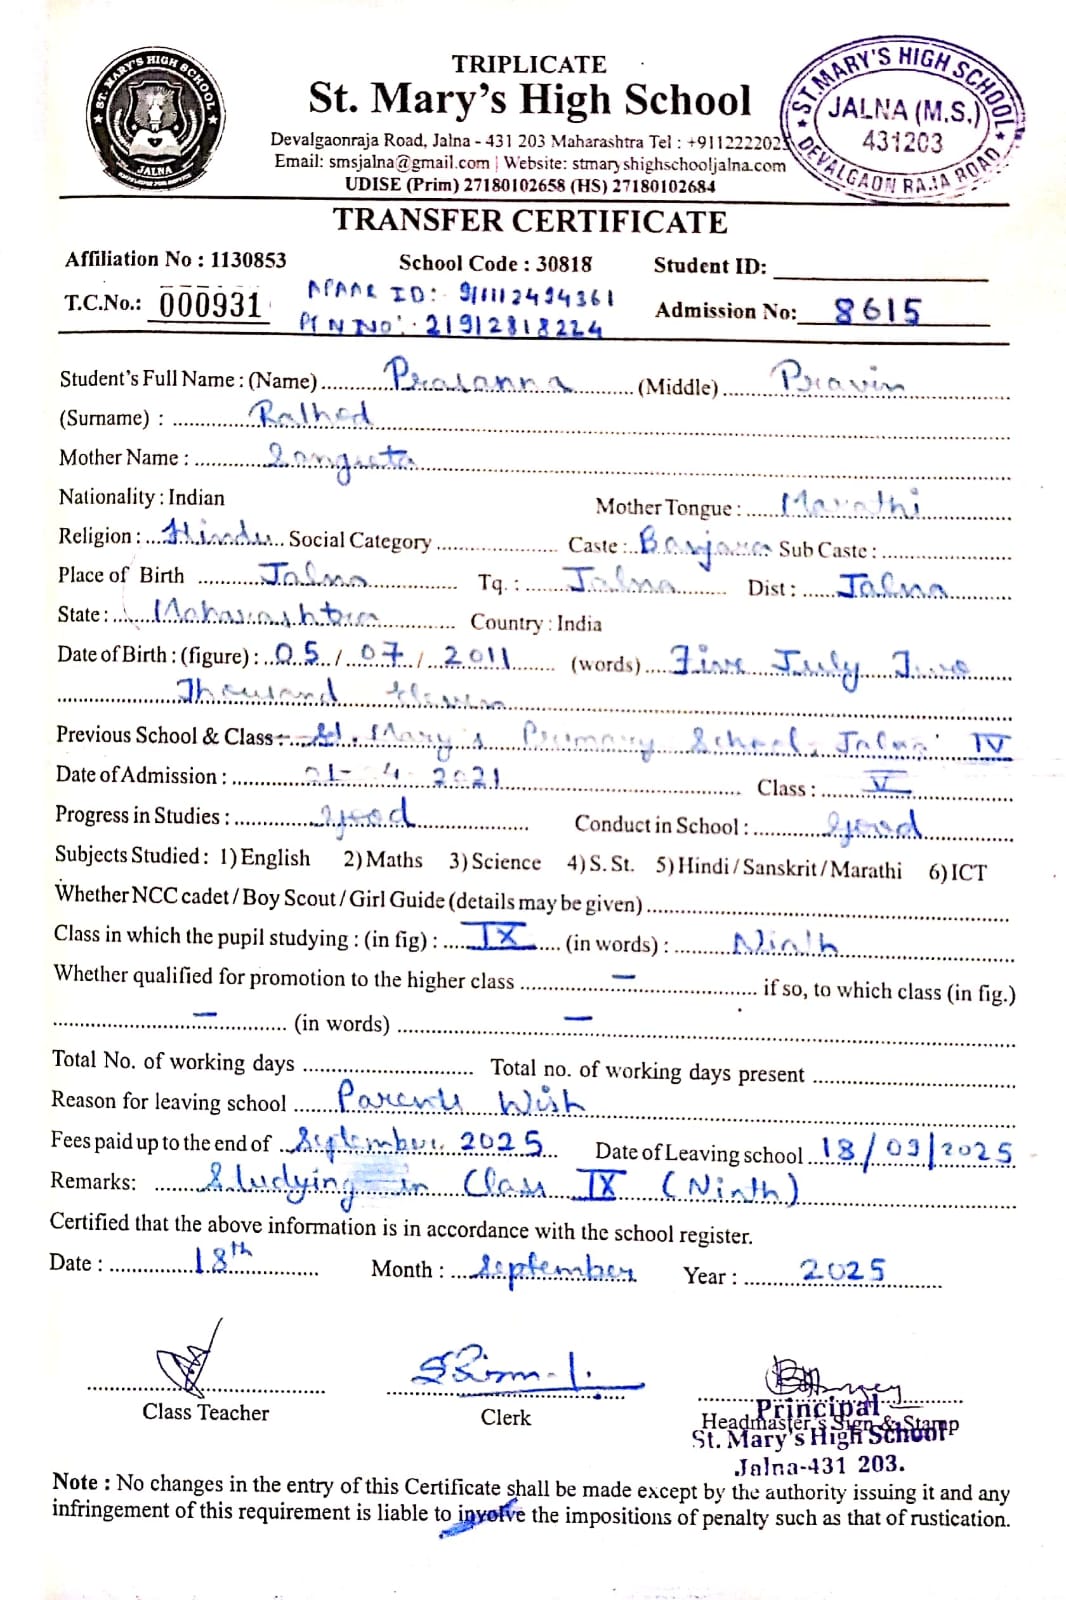 TRIPLICATE
St. Mary's High School
Devalgaonraja Road, Jalna - 431 203 Maharashtra Tel : +911222202
Email: smsjalna@gmail.com | Website: stmaryshighschooljalna.com
UDISE (Prim) 27180102658 (HS) 27180102684
ST. MARY'S HIGH SCHOOL
JALNA
ST. MARY'S HIGH SCHOOL
JALNA (M.S.)
431203
DEVALGAON RAJA ROAD
TRANSFER CERTIFICATE
Affiliation No : 1130853 School Code : 30818 Student ID:
T.C.No.: 000931 APAAR ID:- 911112494361 Admission No: 8615
PEN NO:- 21912818224
Student's Full Name : (Name) Prasanna (Middle) Pravin
(Surname) : Rathod
Mother Name : Sangeeta
Nationality : Indian Mother Tongue : Marathi
Religion : Hindu Social Category Caste : Banjara Sub Caste :
Place of Birth Jalna Tq. : Jalna Dist : Jalna
State : Maharashtra Country : India
Date of Birth : (figure) : 05 / 07 / 2011 (words) Five July Two
Thousand Eleven
Previous School & Class :- St. Mary's Primary School, Jalna IV
Date of Admission : 21-4-2021 Class : V
Progress in Studies : Good Conduct in School : Good
Subjects Studied : 1) English 2) Maths 3) Science 4) S. St. 5) Hindi / Sanskrit / Marathi 6) ICT
Whether NCC cadet / Boy Scout / Girl Guide (details may be given)
Class in which the pupil studying : (in fig) : IX (in words) : Ninth
Whether qualified for promotion to the higher class — if so, to which class (in fig.)
— (in words) —
Total No. of working days Total no. of working days present
Reason for leaving school Parents Wish
Fees paid up to the end of September 2025 Date of Leaving school 18/09/2025
Remarks: Studying in Class IX (Ninth)
Certified that the above information is in accordance with the school register.
Date : 18th Month : September Year : 2025
Class Teacher Clerk Headmaster's Sign & Stamp
Principal
St. Mary's High School
Jalna-431 203.
Note : No changes in the entry of this Certificate shall be made except by the authority issuing it and any
infringement of this requirement is liable to involve the impositions of penalty such as that of rustication.